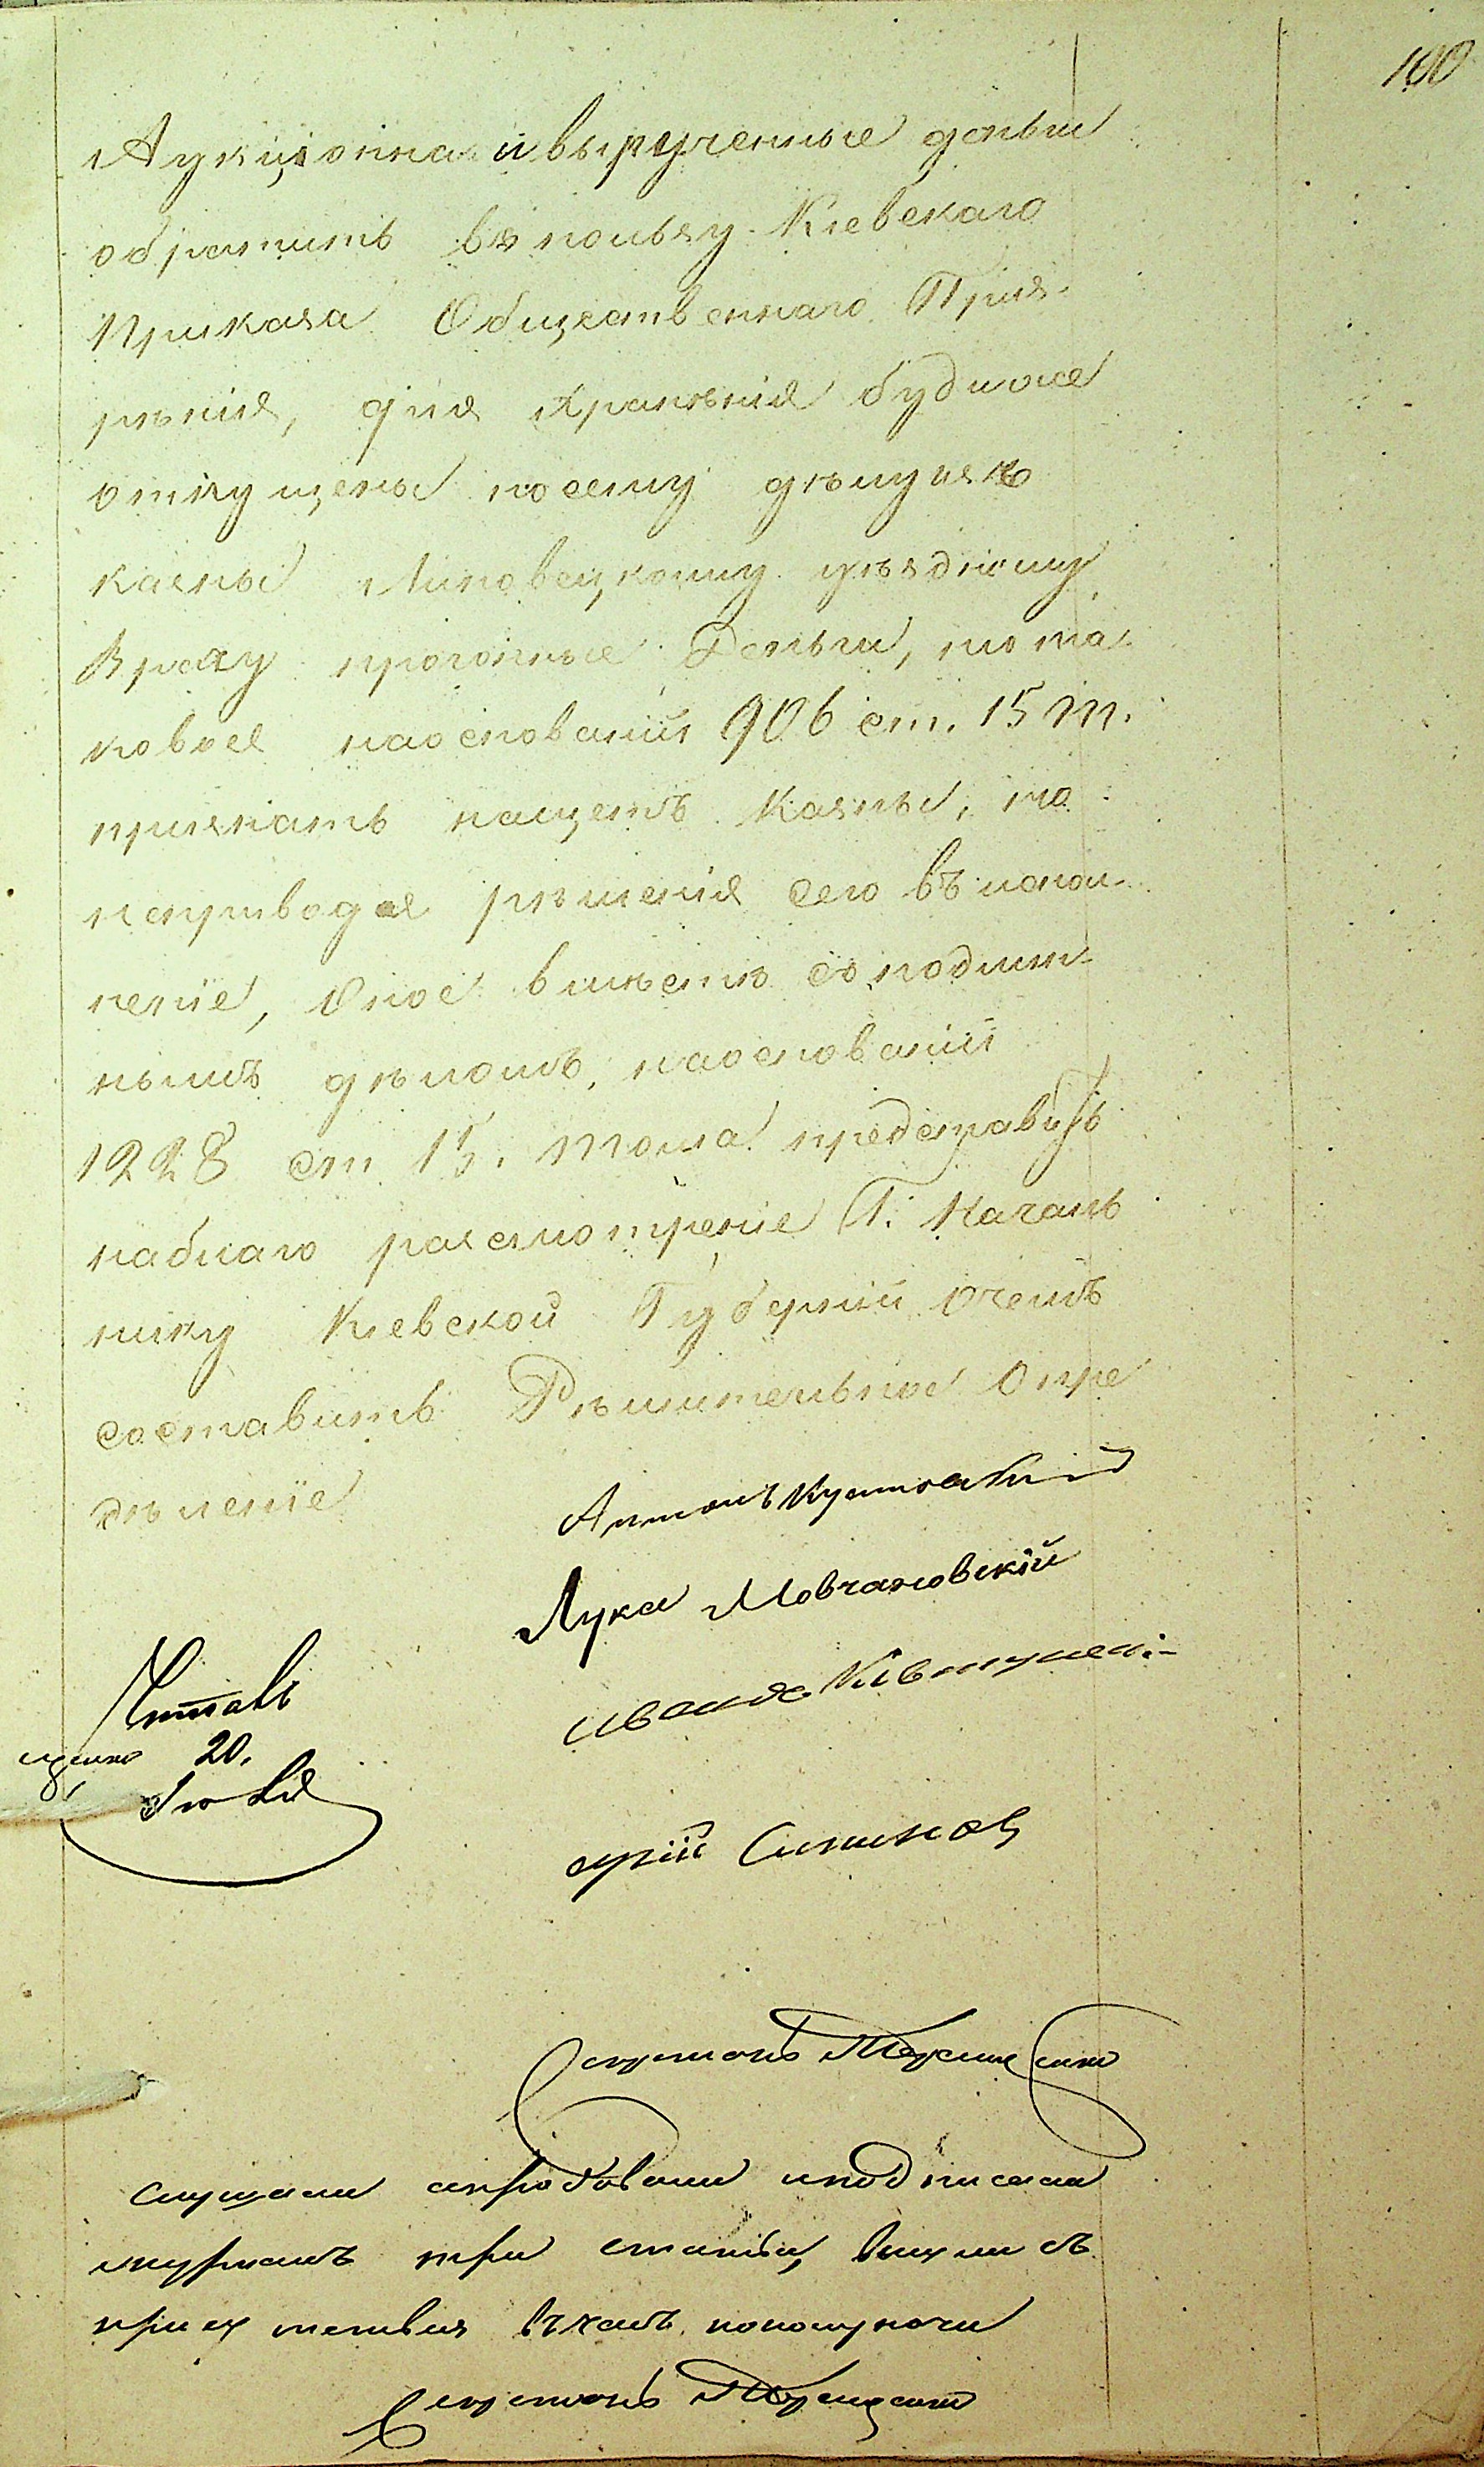 100
Аукціонна и вырученные деньги
обратить въ пользу Кіевскаго
Приказа Общественнаго Приз-
рѣнія, для храненія будиже
отпущены посему дѣлу изъ
казны Липовецкому уѣздному
Врачу прогонные Деньги, то та-
ковые наоснованіи 906 ст. 15 т.
принять нащетъ Казны, но
неприводя рѣшенія сего въ испол-
неніе, Оное вмѣстѣ съ подлин-
нымъ дѣломъ, наоснованіи
1228 ст 15. тома представить
наблаго разсмотреніе Г. Началь
нику Кіевской Губерніи Очемъ
составить Рѣшительное Опре
дѣленіе
Антонъ
Лука Мовчановскій
Иванъ
20.
Секретарь
слушали и подписали
журналъ три статьи, вышли съ
присутствія въ часъ пополуночи
Секретарь